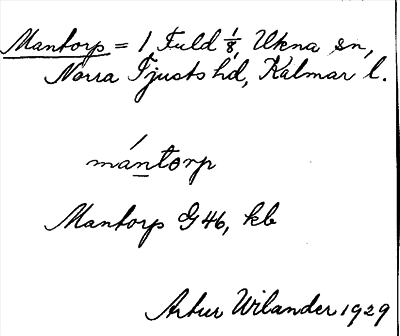 Mantorp = 1 Fuld 1/8, Ukna sn,
Norra Tjusts hd, Kalmar l.
mántorp
Mantorp G 46, kb
Artur Wilander 1929